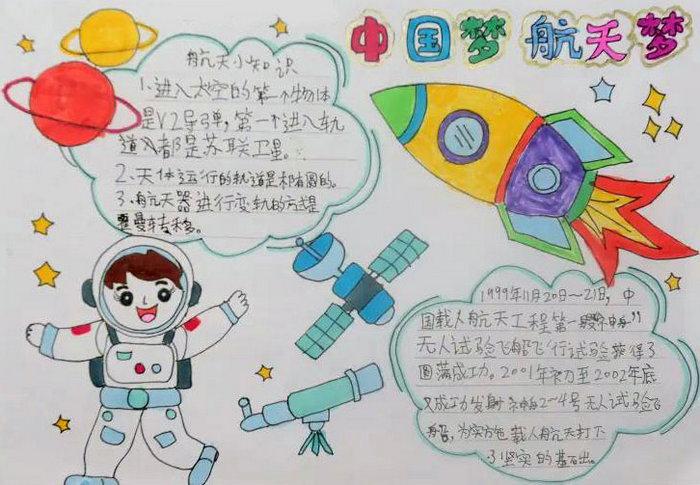 中国梦 航天梦
航天小知识
1.进入太空的第一个物体
是V2导弹，第一个进入轨
道的都是苏联卫星。
2、天体运行的轨道是椭圆的。
3、航天器进行变轨的方式是
曼转移。
1999年11月20日～21日，中
国载人航天工程第一
无人试验飞船飞行试验获得了
圆满成功。2001年初力至2002年底
又成功发射神舟2～4号无人试验飞
船，为实方色载人航天打下
了坚实的基石出。